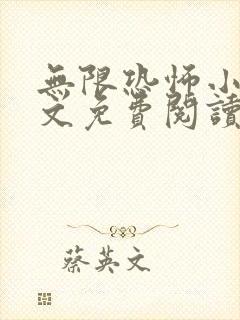 無限恐怖小
文免費閱讀
蔡英文